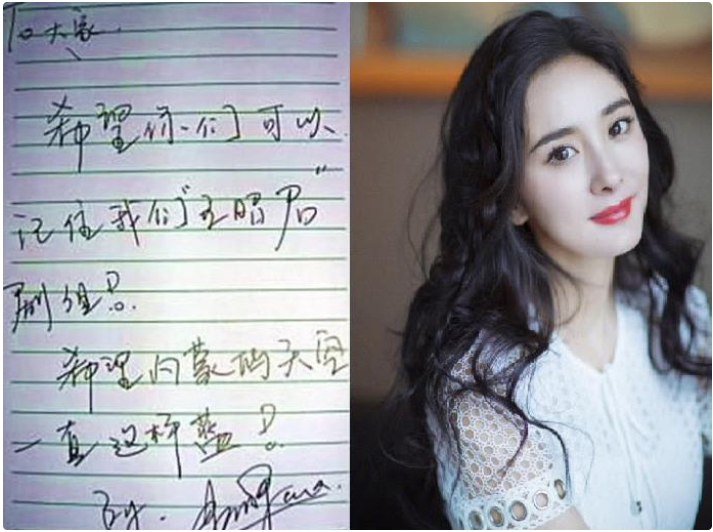 To 大家
希望你们可以
记住我们"王昭君"
剧组!
希望内蒙的天空
一直这样蓝!
By.